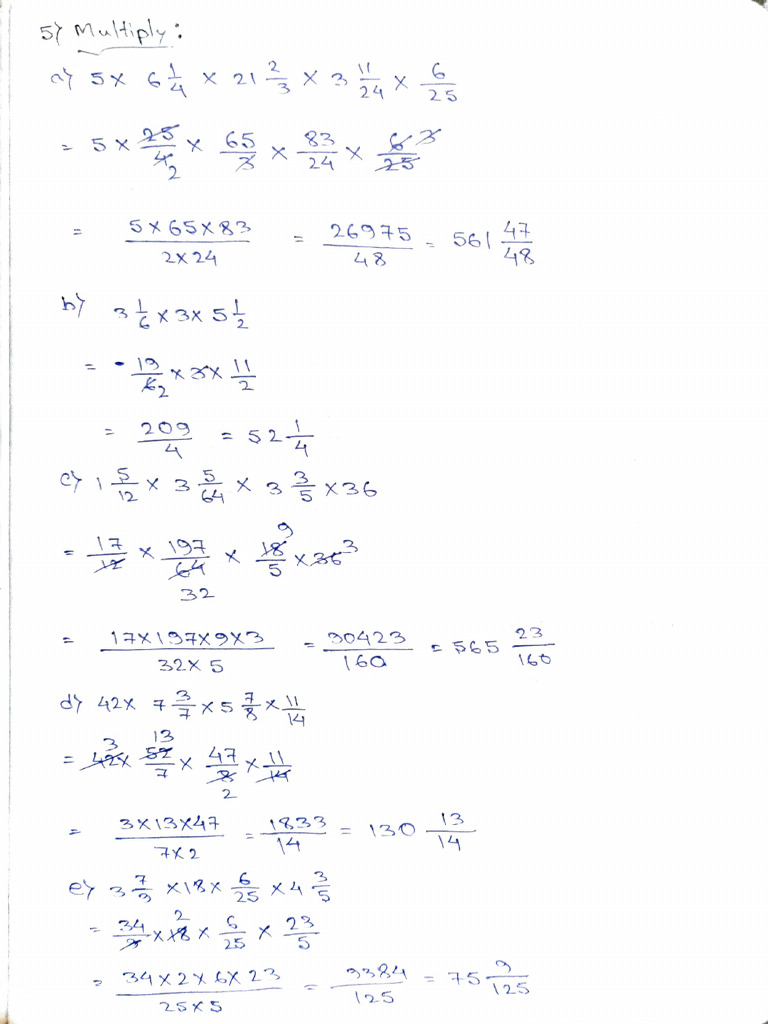 5) Multiply:
a) 5 × 6 1/4 × 21 2/3 × 3 11/24 × 6/25
= 5 × 25/4 2 × 65/3 × 83/24 × 6 3/25
= 5×65×83/2×24 = 26975/48 = 561 47/48
b) 3 1/6 × 3 × 5 1/2
= 19/6 2 × 3 × 11/2
= 209/4 = 52 1/4
c) 1 5/12 × 3 5/64 × 3 3/5 × 36
= 17/12 × 197/64 32 × 18 9/5 × 36 3
= 17×197×9×3/32×5 = 90423/160 = 565 23/160
d) 42 × 7 3/7 × 5 7/8 × 11/14
= 42 3 × 52 13/7 × 47/8 2 × 11/14
= 3×13×47/7×2 = 1833/14 = 130 13/14
e) 3 7/9 × 18 × 6/25 × 4 3/5
= 34/9 × 18 2 × 6/25 × 23/5
= 34×2×6×23/25×5 = 9384/125 = 75 9/125